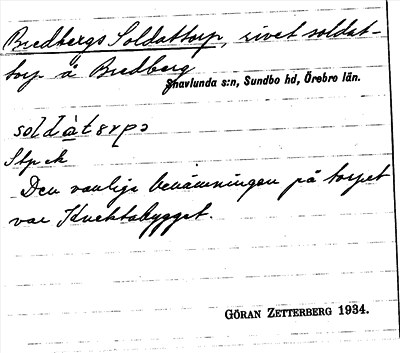 Bredbergs Soldattorp, rivet soldat-
torp å Bredberg
Snavlunda s:n, Sundbo hd, Örebro län.
Stp ek
Den vanliga benämningen på torpet
var Knektabygget.
GÖRAN ZETTERBERG 1934.